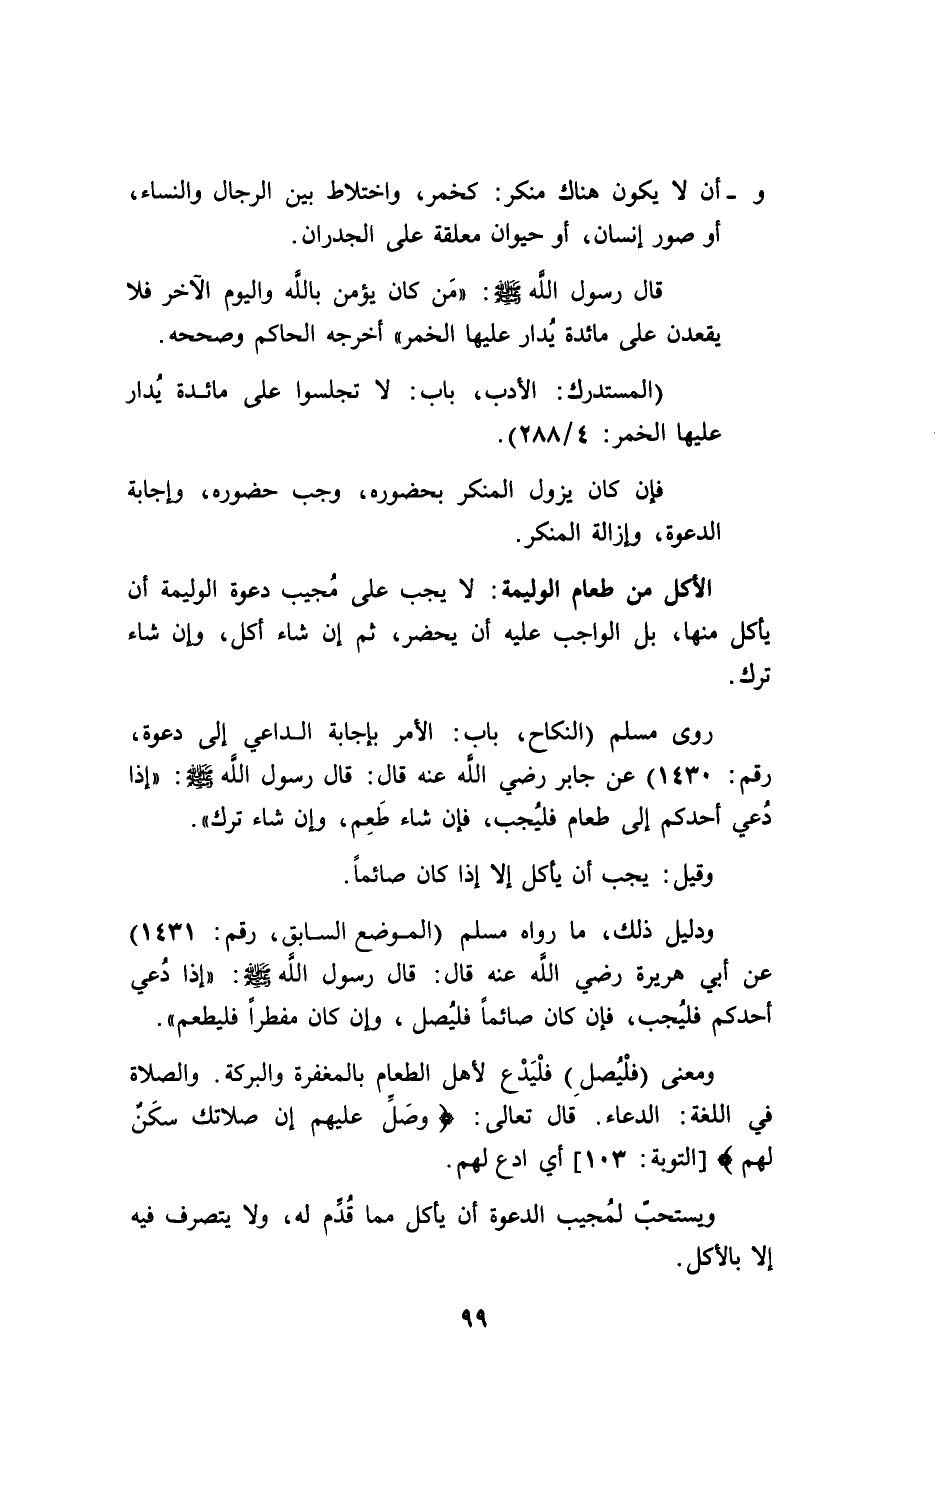 و - أن لا يكون هناك منكر: كخمر، واختلاط بين الرجال والنساء،
أو صور إنسان، أو حيوان معلقة على الجدران.
قال رسول اللَّه ﷺ: «مَن كان يؤمن باللَّه واليوم الآخر فلا
يقعدن على مائدة يُدار عليها الخمر» أخرجه الحاكم وصححه.
(المستدرك: الأدب، باب: لا تجلسوا على مائدة يُدار
عليها الخمر: ٢٨٨/٤).
فإن كان يزول المنكر بحضوره، وجب حضوره، وإجابة
الدعوة، وإزالة المنكر.
الأكل من طعام الوليمة: لا يجب على مُجيب دعوة الوليمة أن
يأكل منها، بل الواجب عليه أن يحضر، ثم إن شاء أكل، وإن شاء
ترك.
روى مسلم (النكاح، باب: الأمر بإجابة الداعي إلى دعوة،
رقم: ١٤٣٠) عن جابر رضي اللَّه عنه قال: قال رسول اللَّه ﷺ: «إذا
دُعي أحدكم إلى طعام فليُجب، فإن شاء طَعِم، وإن شاء ترك».
وقيل: يجب أن يأكل إلا إذا كان صائماً.
ودليل ذلك، ما رواه مسلم (الموضع السابق، رقم: ١٤٣١)
عن أبي هريرة رضي اللَّه عنه قال: قال رسول اللَّه ﷺ: «إذا دُعي
أحدكم فليُجب، فإن كان صائماً فليُصل، وإن كان مفطراً فليطعم».
ومعنى (فلْيُصلِ) فلْيَدْع لأهل الطعام بالمغفرة والبركة. والصلاة
في اللغة: الدعاء. قال تعالى: ﴿وصَلِّ عليهم إن صلاتك سكَنٌ
لهم﴾ [التوبة: ١٠٣] أي ادع لهم.
ويستحبّ لمُجيب الدعوة أن يأكل مما قُدِّم له، ولا يتصرف فيه
إلا بالأكل.
٩٩